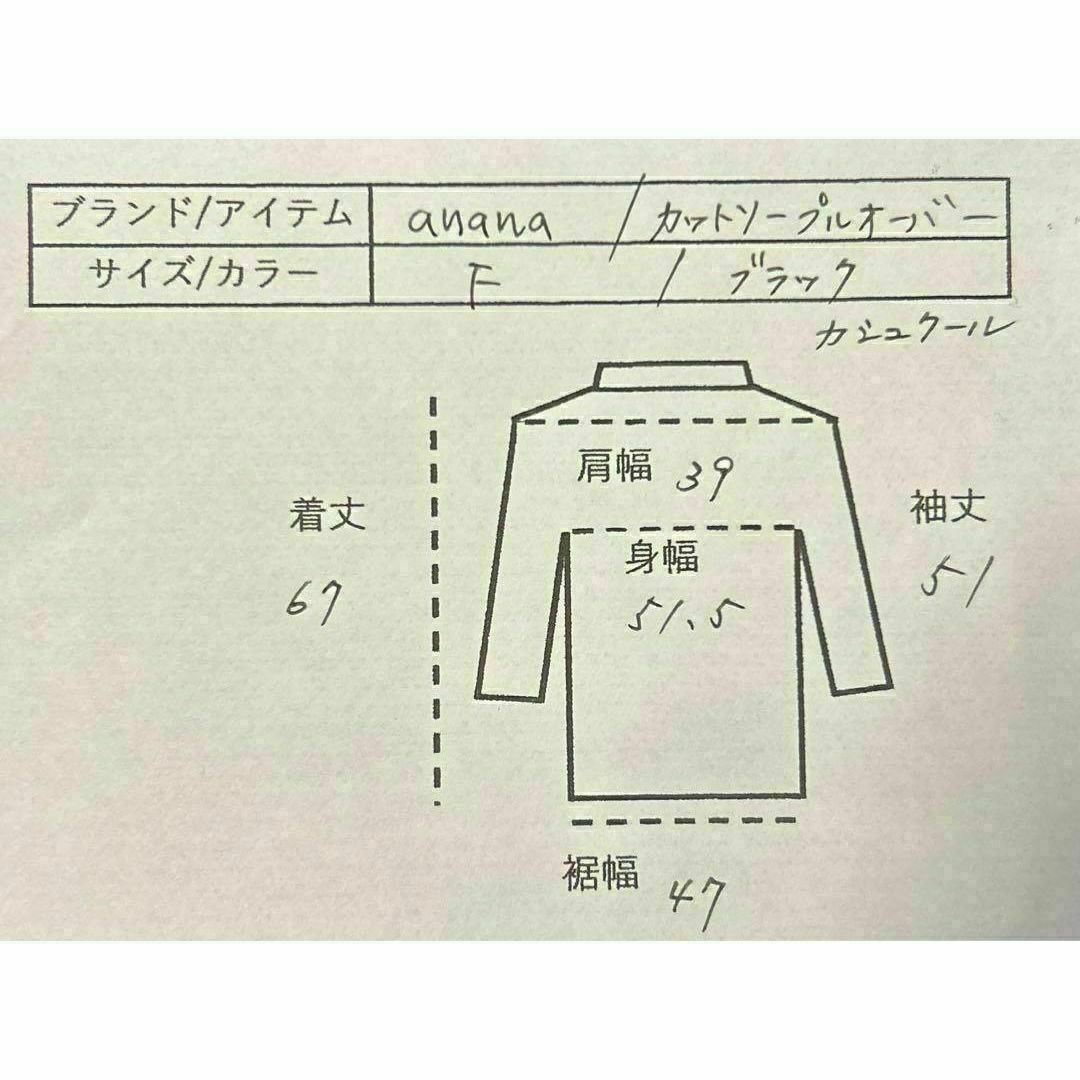 ブランド/アイテム anana / カットソープルオーバー
サイズ/カラー F / ブラック
カシュクール
肩幅 39
着丈
袖丈
身幅
67
51
51、5
裾幅 47